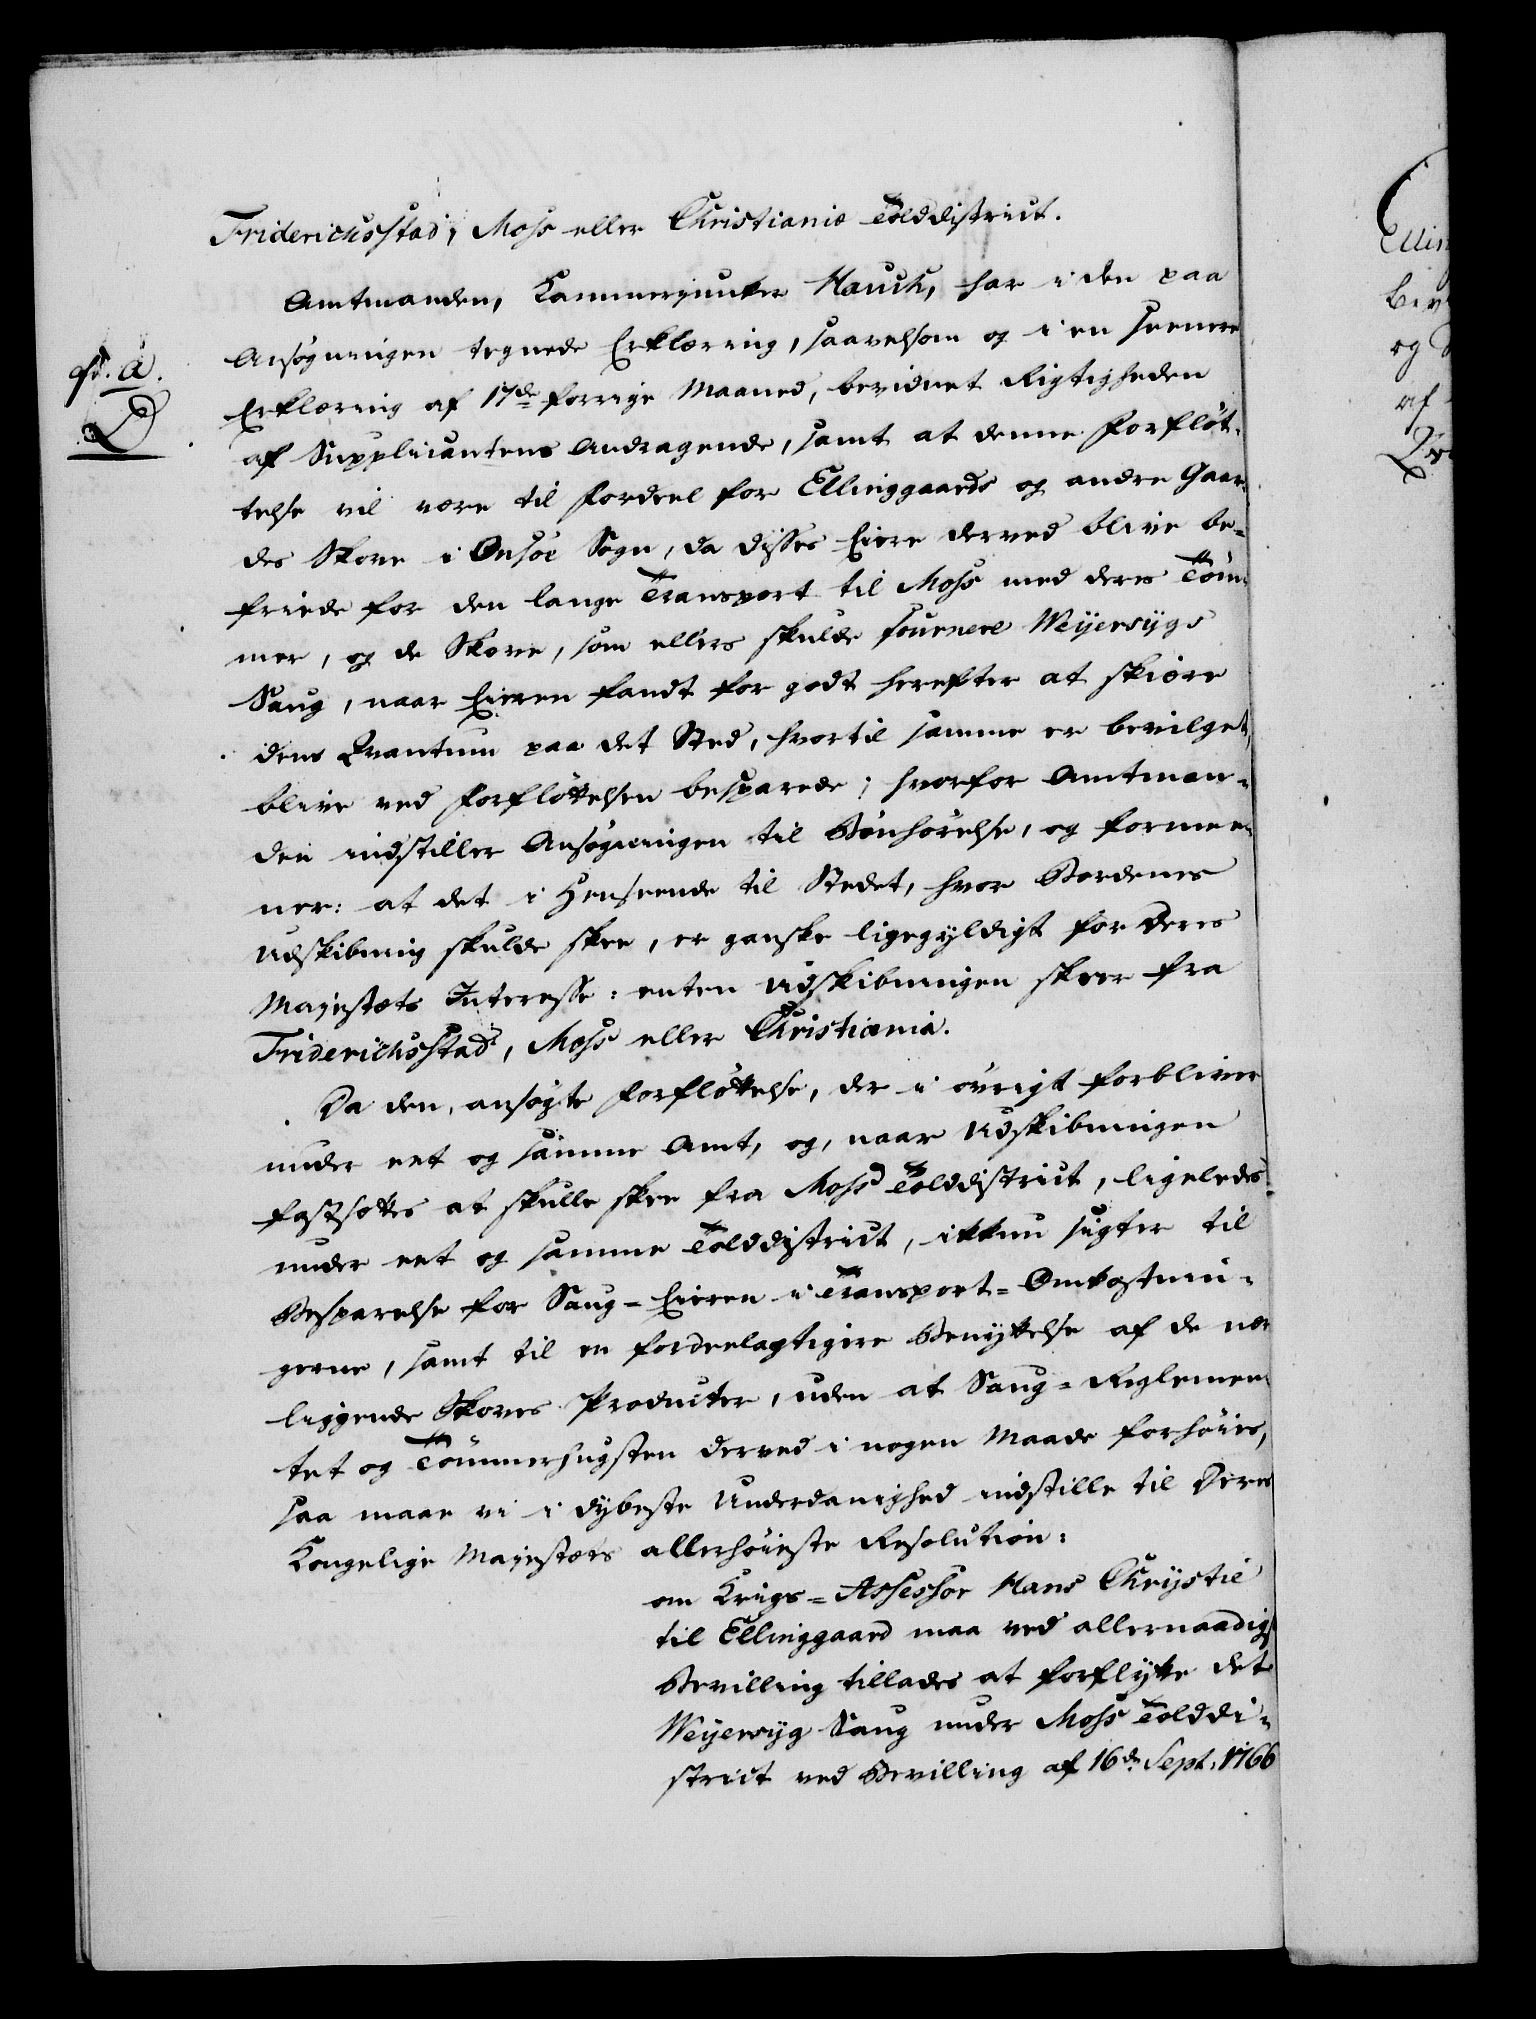 Friderichsstad, Moss eller Christiania Tolddistrict.
Amtmanden, Kammerjunker Hauch, har i den paa
Ansøgningen tegnede Erklæring, saavelsom og i en seenere
Erklæring af 17de forrige Maaned, bevidnet Rigtigheden
af Supplicantens Andragende, samt at denne Forfløt-
telse vil være til Fordeel for Ellinggaards og andre Gaar-
des Skove i Onsøe Sogn, da disses Eiere derved blive be-
friede for den lange Transport til Moss med deres Tøm-
mer, og de Skove, som ellers skulde fournere Weyersygs
Saug, naar Eieren fandt for godt herefter at skiøre
dens Qvantum paa det Sted, hvortil samme er bevilget,
blive ved Forfløttelsen besparede; hvorfor Amtman-
den indstiller Ansøgningen til Bønhørelse, og formee-
ner: at det i Henseende til Stedet, hvor Bordenes
Udskibning skulde skee, er ganske ligegyldigt for Deres
Majestæts Interesse: enten Udskibningen skeer fra
Friderichsstad, Moss eller Christiania.
Da den ansøgte Forfløttelse, der i øvrigt forbliver
under eet og samme Amt, og, naar Udskibningen
fastsættes at skulle skee fra Moss Tolddistrict, ligeledes
under eet og samme Tolddistrict, ikkun sigter til
Besparelse for Saug-Eieren i Transport-Omkostnin-
gerne, samt til en fordeelagtigere Benyttelse af de nær
liggende Skoves Producter, uden at Saug-Reglemen-
tet og Tømmerhugsten derved i nogen Maade forhøies,
saa maae vi i dybeste Underdanighed indstille til Deres
Kongelige Majestæts allerhøieste Resolution:
om Krigs-Assessor Hans Chrystie
til Ellinggaard maa ved allernaadigst
Bevilling tillades at forflytte det
Weyersyg Saug under Moss Tolddi-
strict ved Bevilling af 16de Sept. 1766